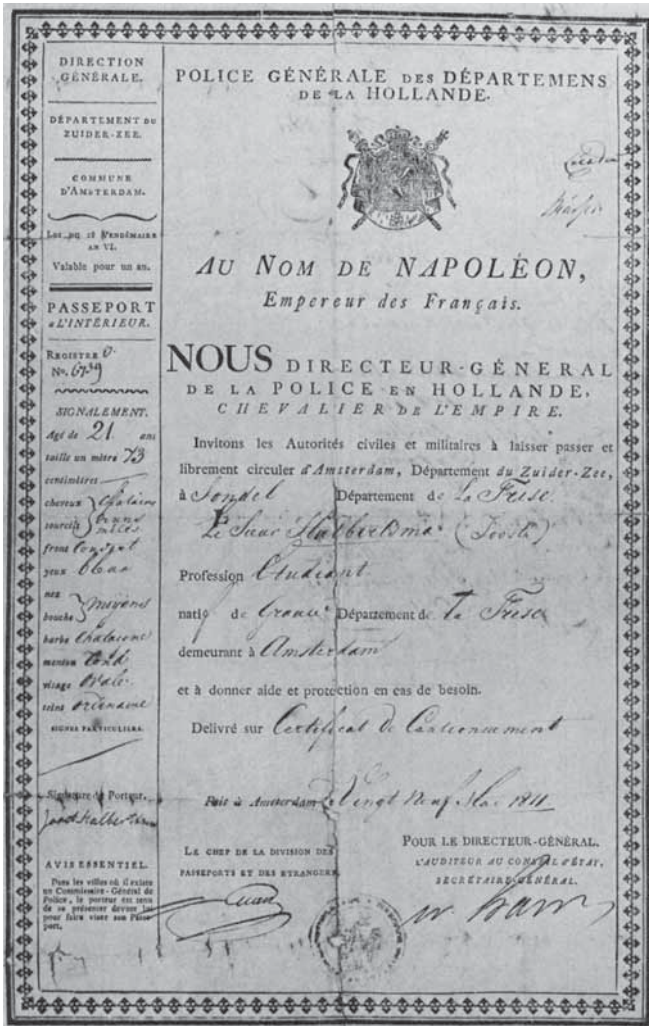 DIRECTION
GÉNÉRALE.
DÉPARTEMENT DU
ZUIDER-ZEE.
COMMUNE
D'AMSTERDAM.
LOI DU 28 VENDÉMIAIRE
AN VI.
Valable pour un an.
PASSEPORT
à L'INTÉRIEUR.
REGISTRE
No.
SIGNALEMENT.
Agé de 21 ans
taille un mètre 73
centimètres
cheveux chataine
sourcils
front
yeux bleu
nez
bouche moyens
barbe Chataione
menton rond
visage Ovale
teint ordenaire
SIGNES PARTICULIERS.
Signature du Porteur.
Joost Halbertsma
AVIS ESSENTIEL.
Dans les villes où il existe
un Commissaire-Général de
Police, le porteur est tenu
de se présenter devant lui
pour faire viser son Passe-
port.
POLICE GÉNÉRALE DES DÉPARTEMENS
DE LA HOLLANDE.
AU NOM DE NAPOLÉON,
Empereur des Français.
NOUS DIRECTEUR-GÉNERAL
DE LA POLICE EN HOLLANDE,
CHEVALIER DE L'EMPIRE.
Invitons les Autorités civiles et militaires à laisser passer et
librement circuler d'Amsterdam, Département du Zuider-Zee,
à Sondel Département de La Frise
Le Sieur Halbertsma (Joost)
Profession Etudiant
natif de Grouw Département de La Frise
demeurant à Amsterdam
et à donner aide et protection en cas de besoin.
Delivré sur Certificat de Cautionnement
Fait à Amsterdam Le Vingt Neuf Mai 1811
LE CHEF DE LA DIVISION DES
PASSEPORTS ET DES ETRANGERS,
POUR LE DIRECTEUR-GÉNÉRAL.
L'AUDITEUR AU CONSEIL D'ÉTAT,
SECRÉTAIRE-GÉNÉRAL.